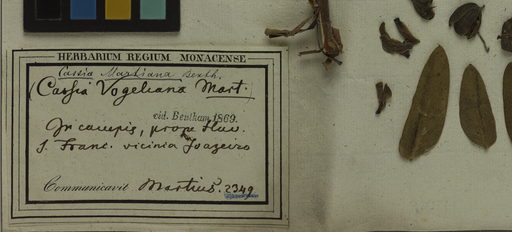 HERBARIUM REGIUM MONACENSE
Cassia Martiana Benth.
(Cassia Vogeliana Mart.)
vid. Bentham 1869.
In campis, prope fluv.
S. Franc. vicinia Joazeiro
Communicavit Martius. 2349